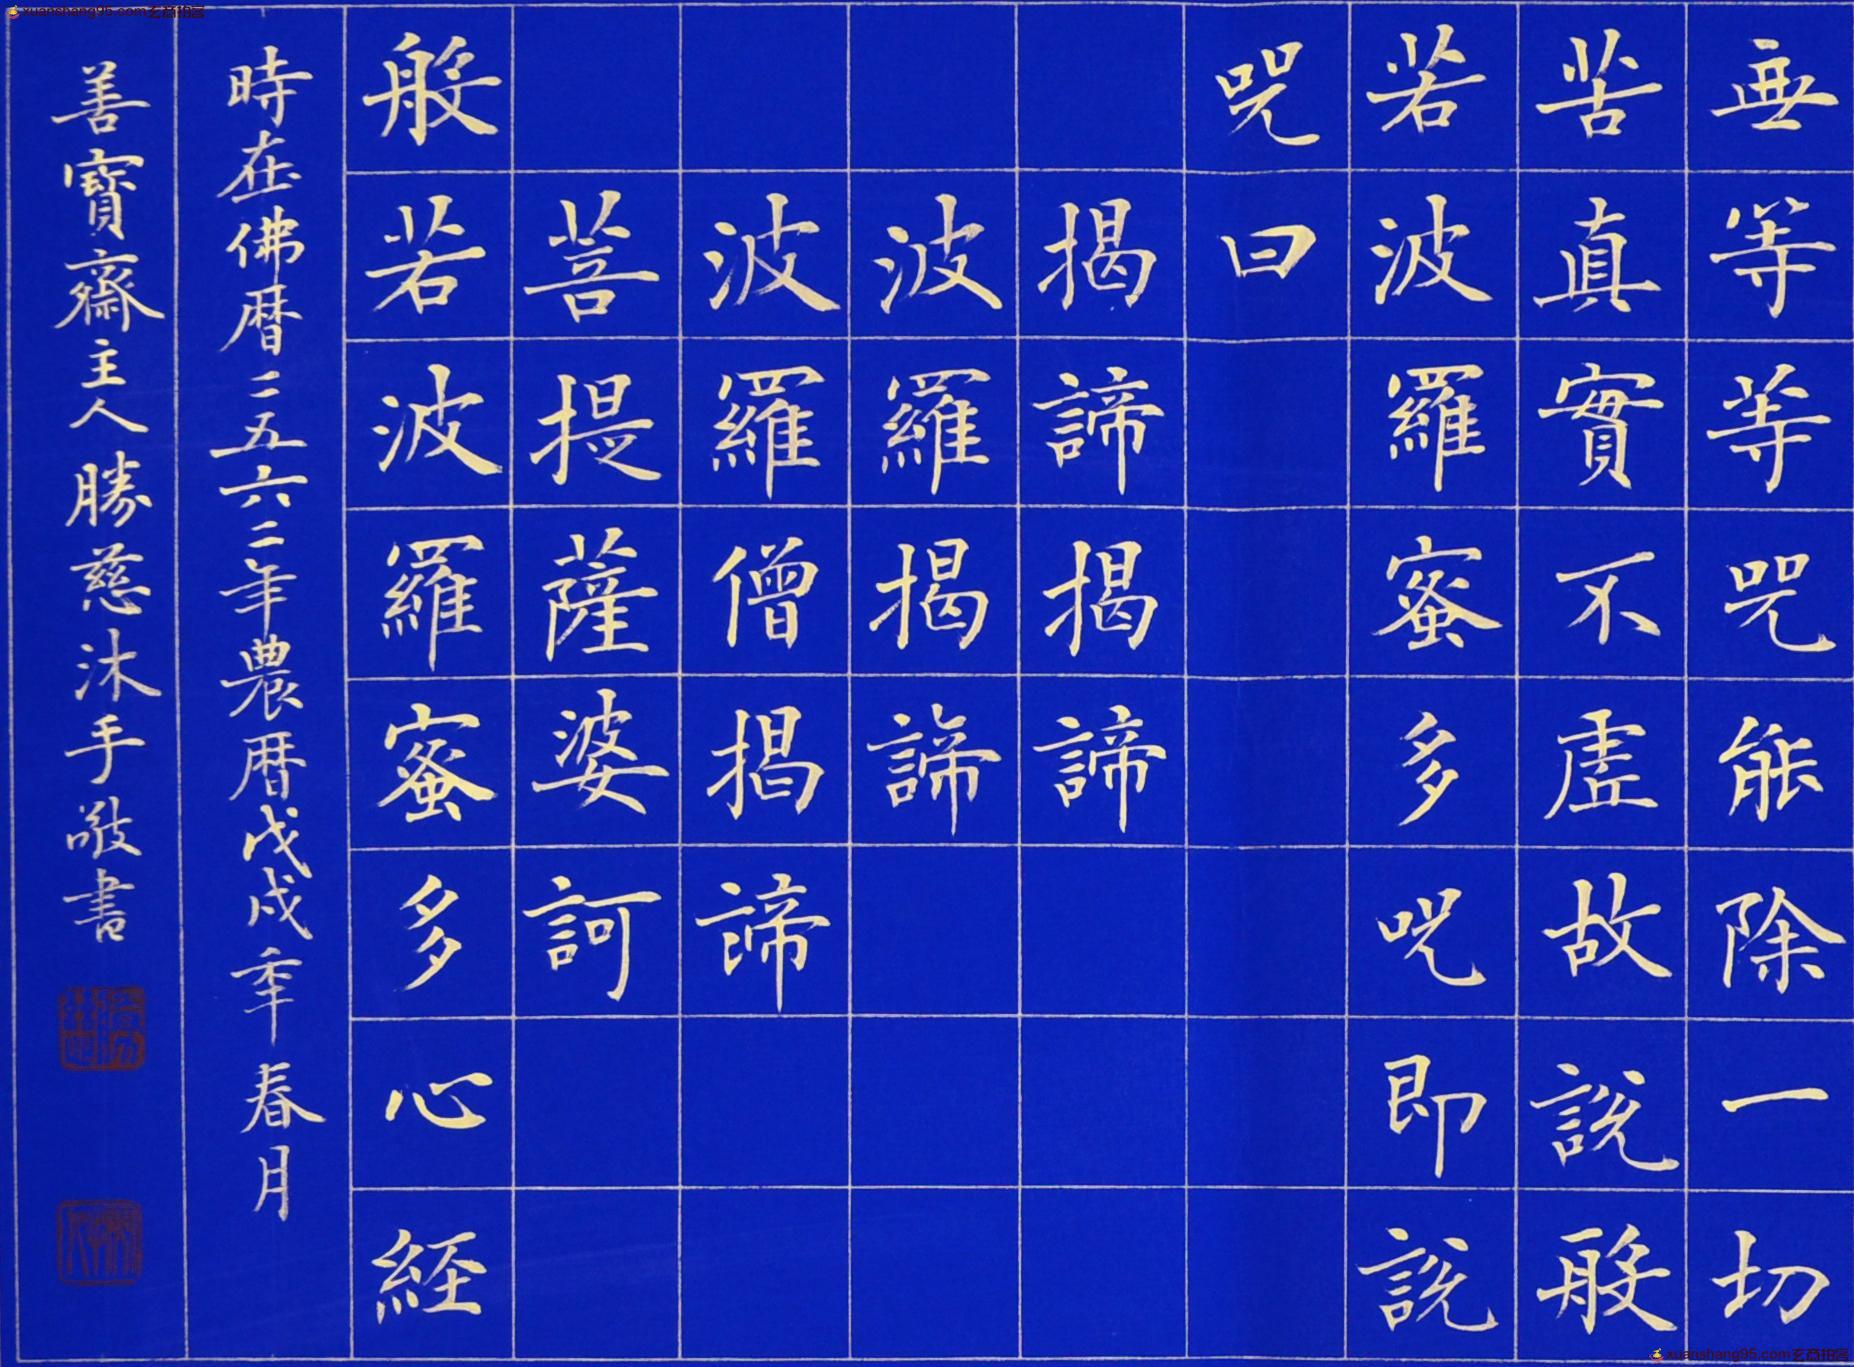 無等等咒能除一切
苦真實不虛故說般
若波羅蜜多咒即說
咒曰
揭諦揭諦
波羅揭諦
波羅僧揭諦
菩提薩婆訶
般若波羅蜜多心経
時在佛曆二五六二年農曆戊戌年春月
善寶齋主人勝慈沐手敬書
xuanshang95.com玄商拍客
xuanshang95.com玄商拍客